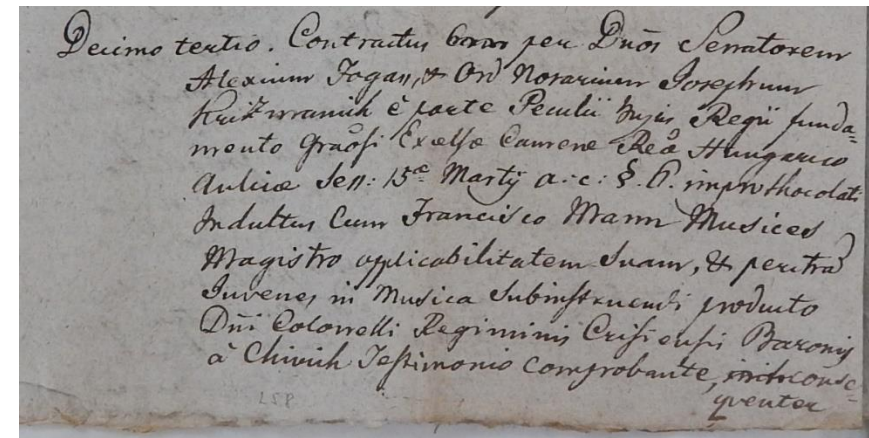 Decimo tertio. Contractus coram per Dnos Senatorem
Alexium Fogass, & Ord Notarium Josephum
Krizmanich è parte Peculii hujus Regii funda=
mento Graosi Excelsæ Camere Reæ Hungarico
Aulicæ Sess: 15æ Martÿ a: c: §. 6. improthocolati
Indultus Cum Francisco Mann Musices
Magistro applicabilitatem Suam, & peritia
Iuvenes in Musica Subinstruendi producto
Dni Colonelli Regiminis Crisiensis Baronis
à Chivich Testimonio comprobante, conse=
quenter